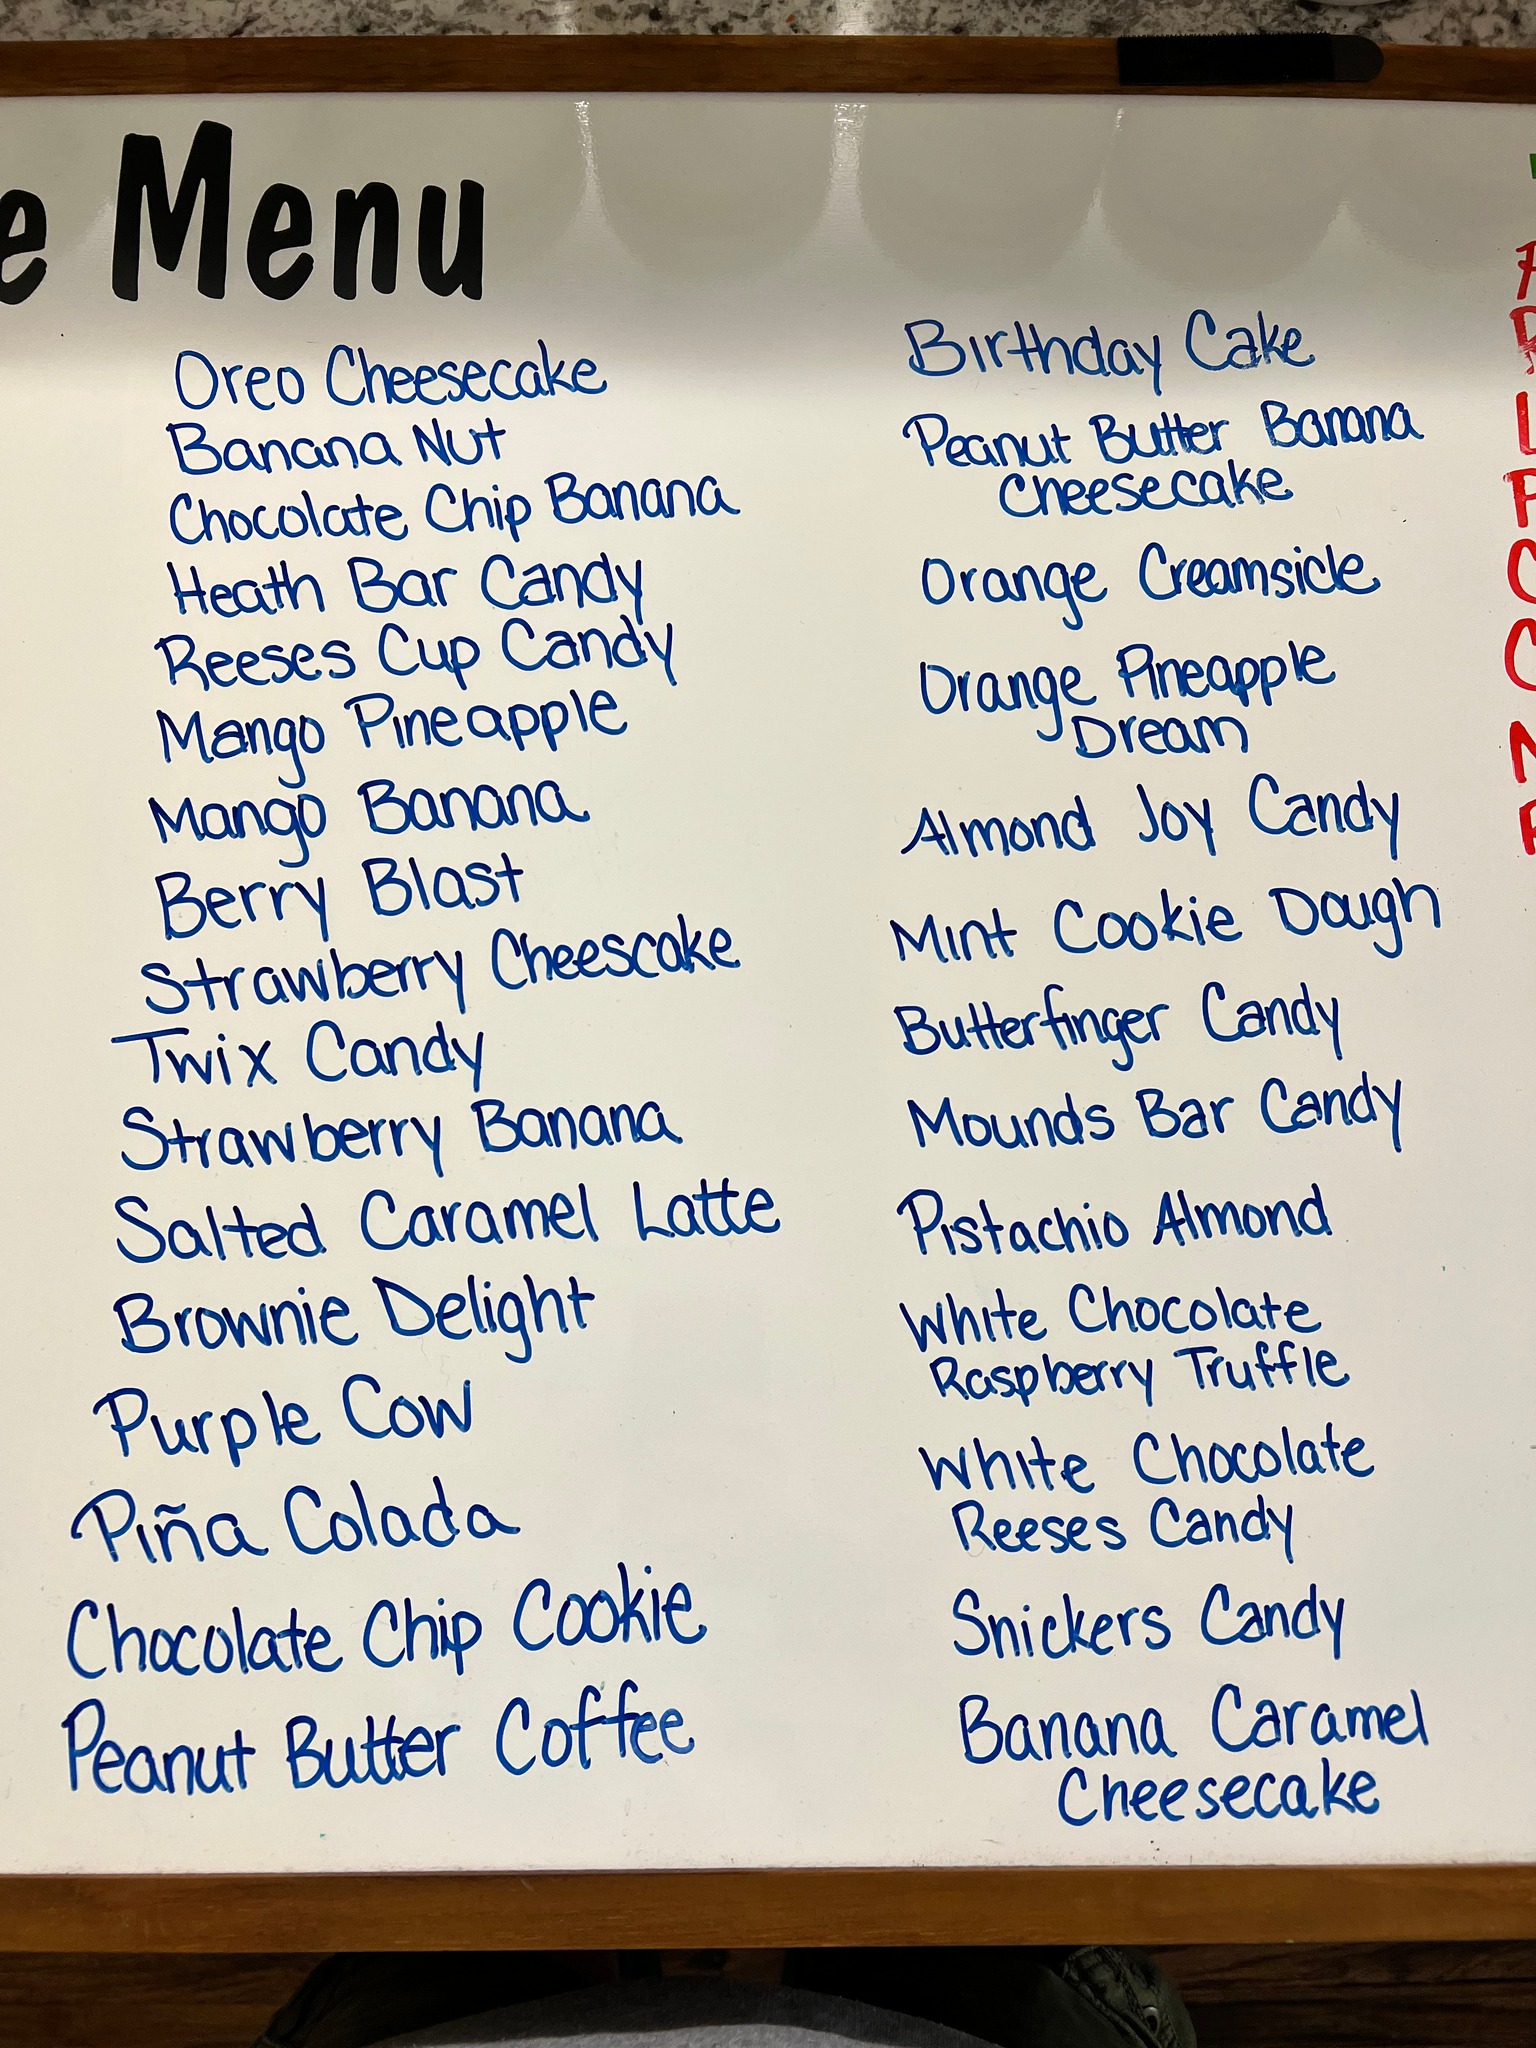 Menu
Oreo Cheesecake
Banana Nut
Chocolate Chip Banana
Heath Bar Candy
Reeses Cup Candy
Mango Pineapple
Mango Banana
Berry Blast
Strawberry Cheescake
Twix Candy
Strawberry Banana
Salted Caramel Latte
Brownie Delight
Purple Cow
Piña Colada
Chocolate Chip Cookie
Peanut Butter Coffee
Birthday Cake
Peanut Butter Banana
Cheesecake
Orange Creamsicle
Orange Pineapple
Dream
Almond Joy Candy
Mint Cookie Dough
Butterfinger Candy
Mounds Bar Candy
Pistachio Almond
White Chocolate
Raspberry Truffle
White Chocolate
Reeses Candy
Snickers Candy
Banana Caramel
Cheesecake